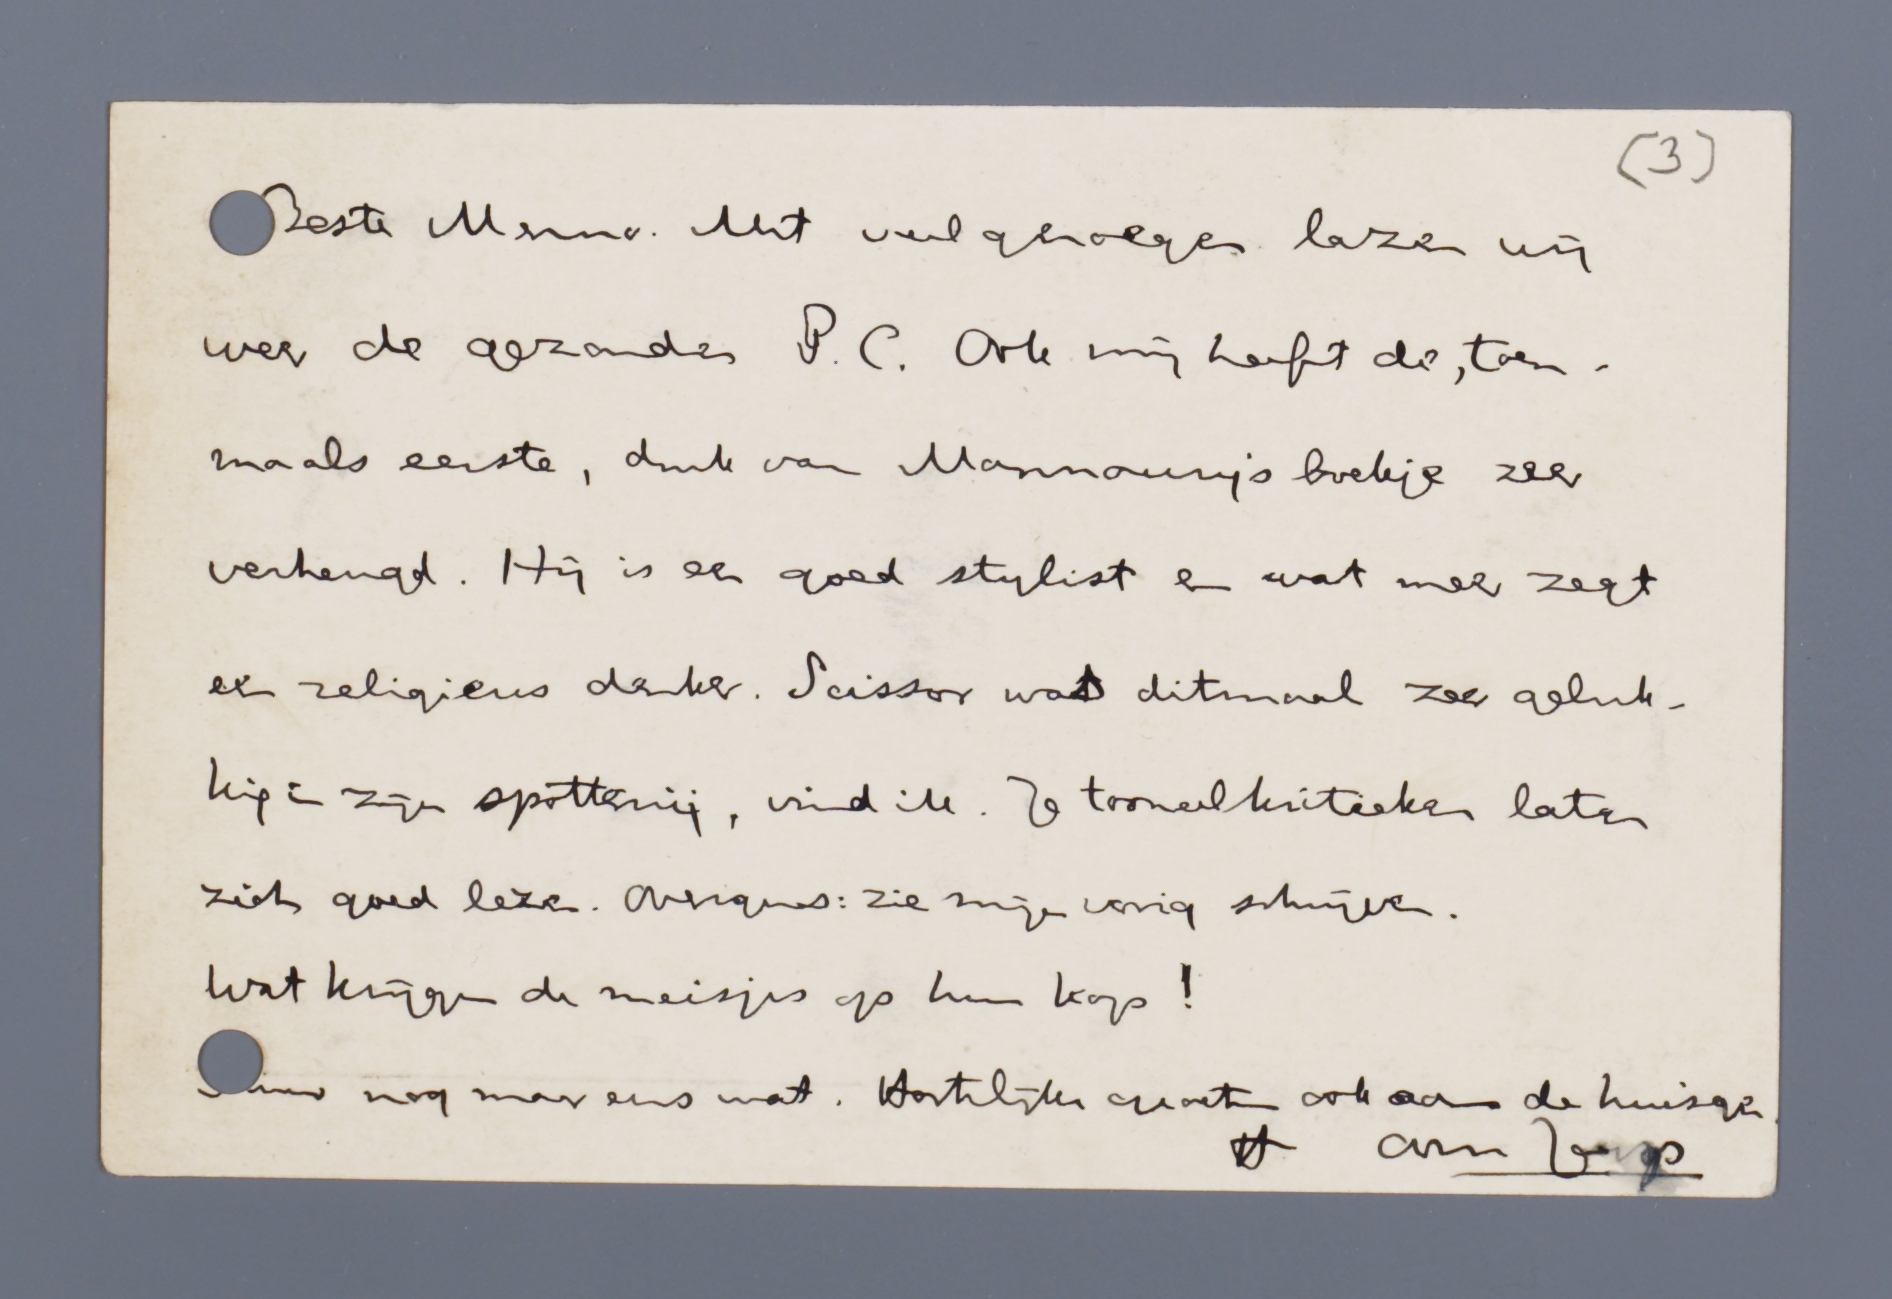 (3)
Beste Menno. Met veel genoegen lazen wij
weer de gezonden P.C. Ook mij heeft de, toen-
maals eerste, druk van Mannourijs boekje zeer
verheugd. Hij is een goed stylist en wat meer zegt
een religieus denker. Scissor was ditmaal zeer geluk-
kig in zijn spotternij, vind ik. Je tooneelkritieken laten
zich goed lezen. Overigens: zie mijn vorig schrijven.
Wat krijgen de meisjes op hun kop!
nog maar eens wat. Hartelijke groeten ook aan de huisgen.